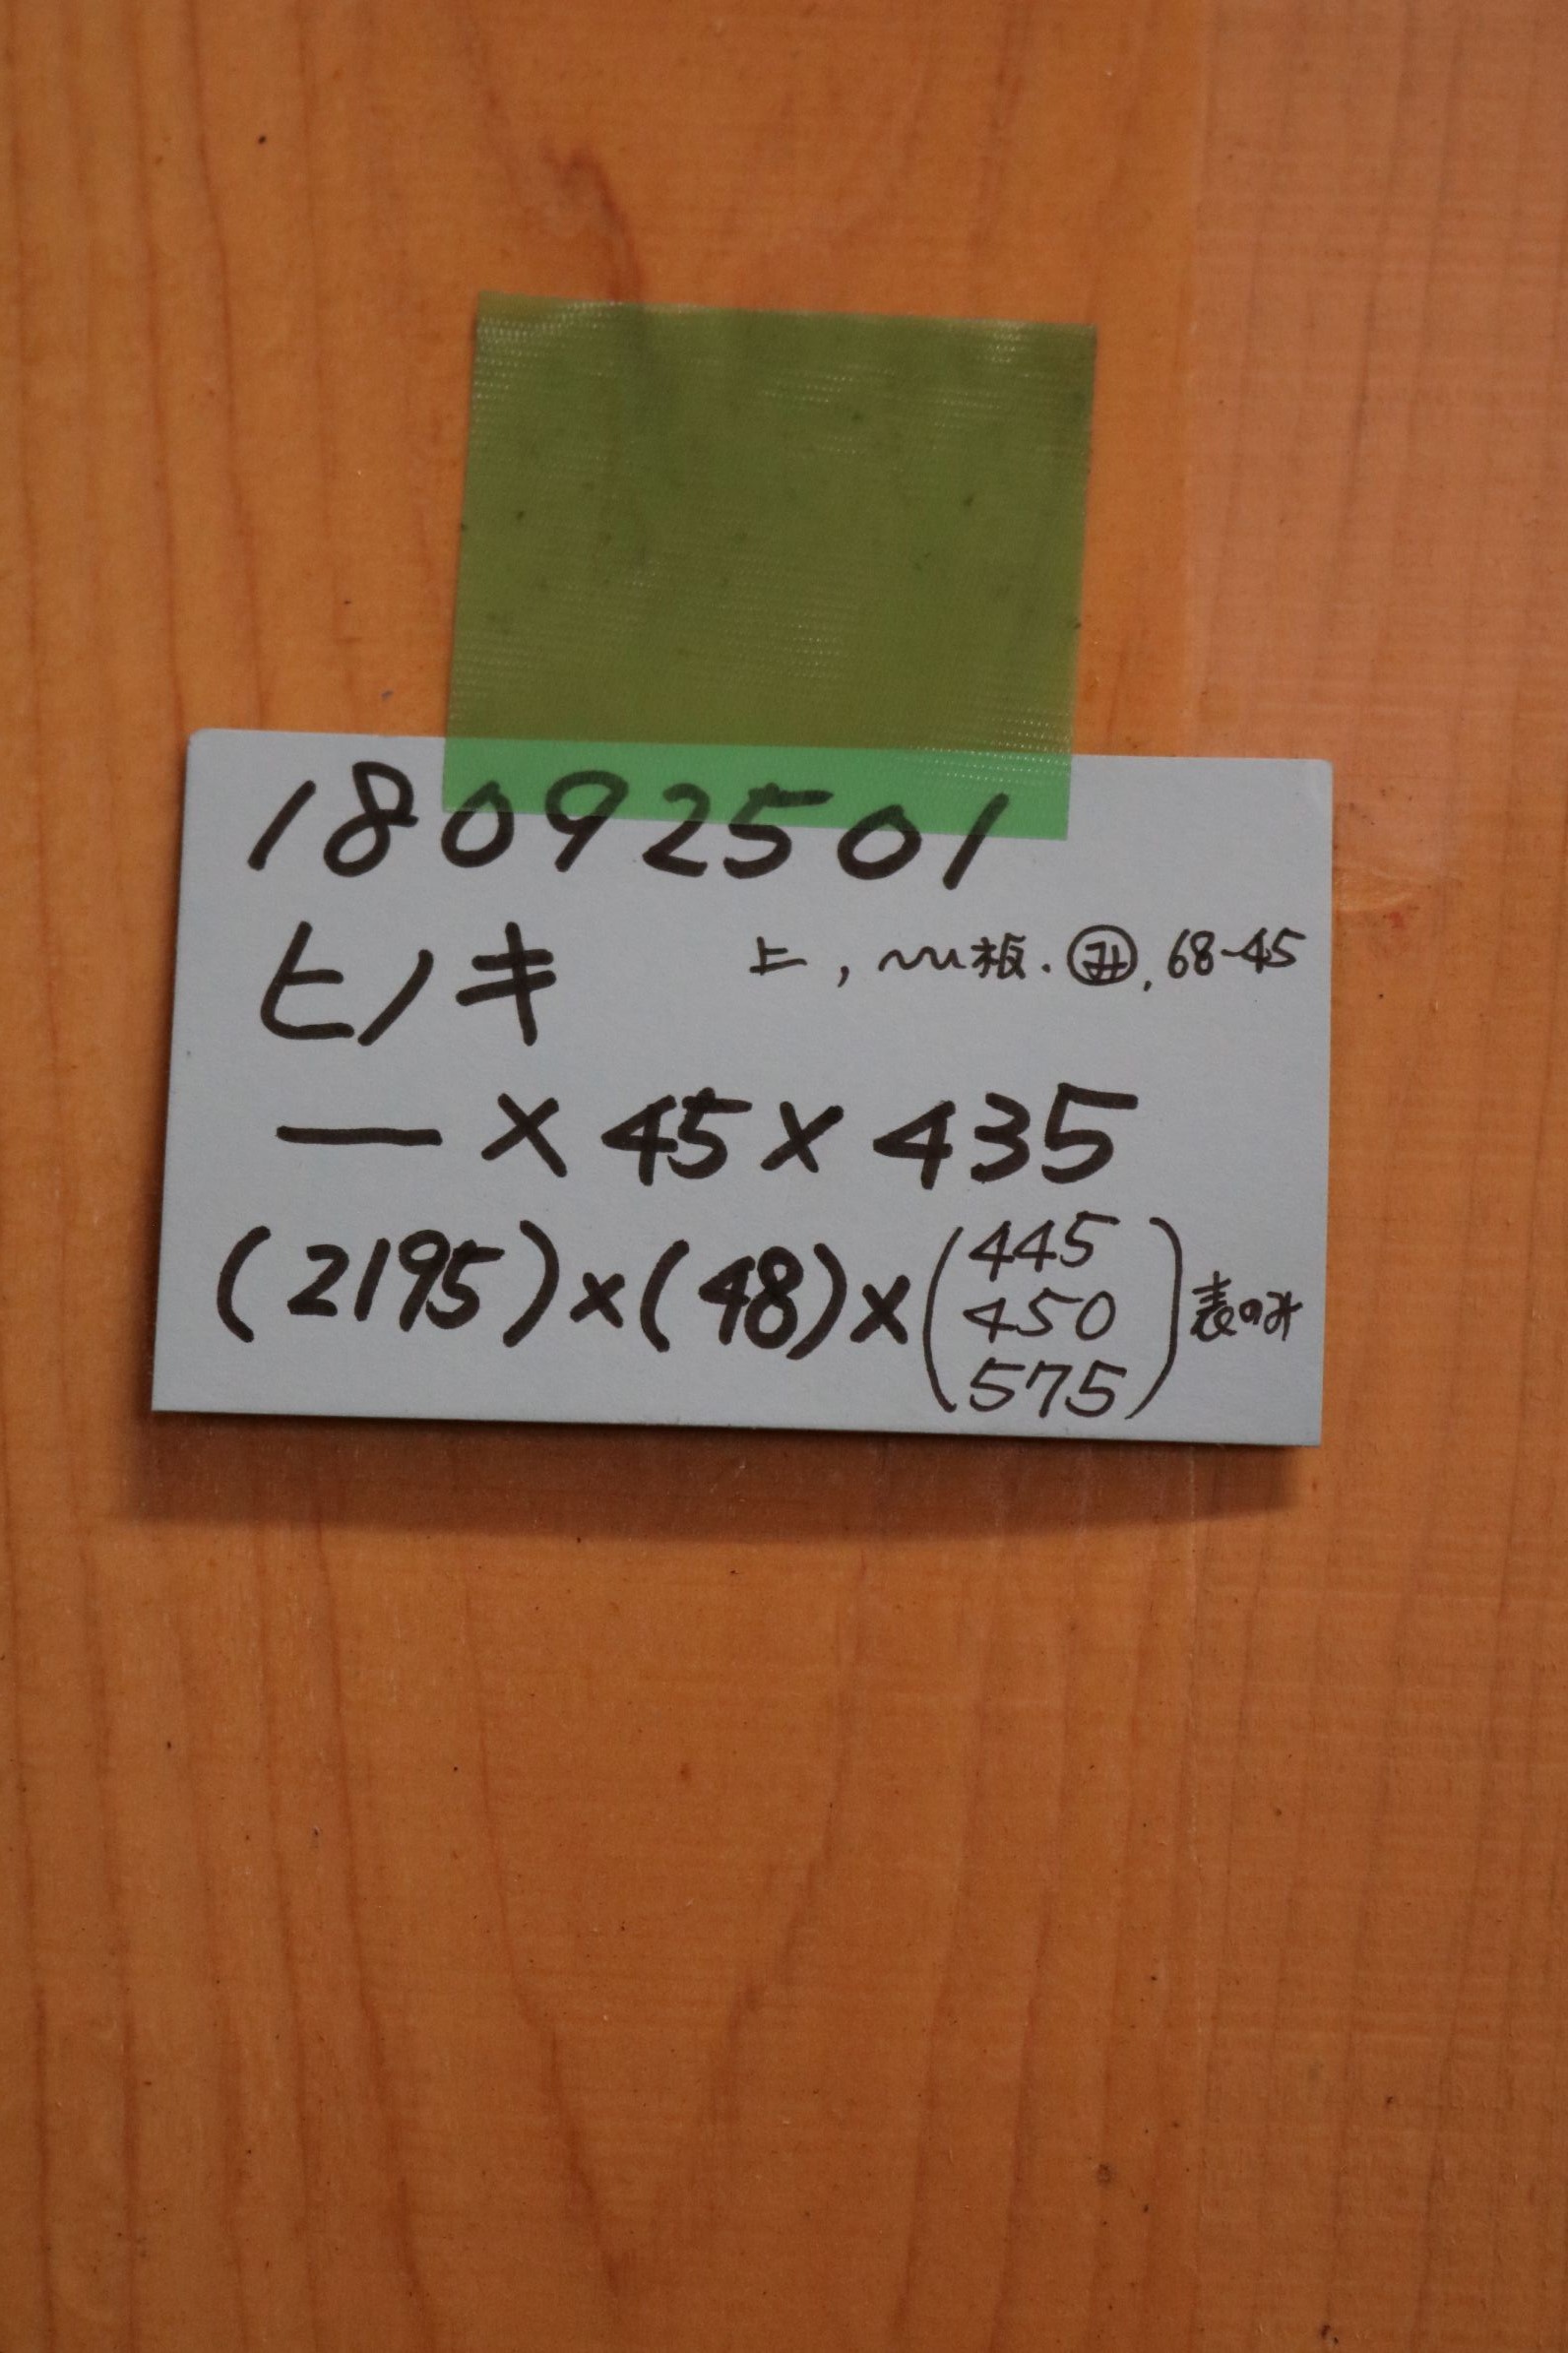 18092501
ヒノキ 上, 〜板. 68-45
— × 45 × 435
(2195)×(48)×(445
450
575) 表のみ